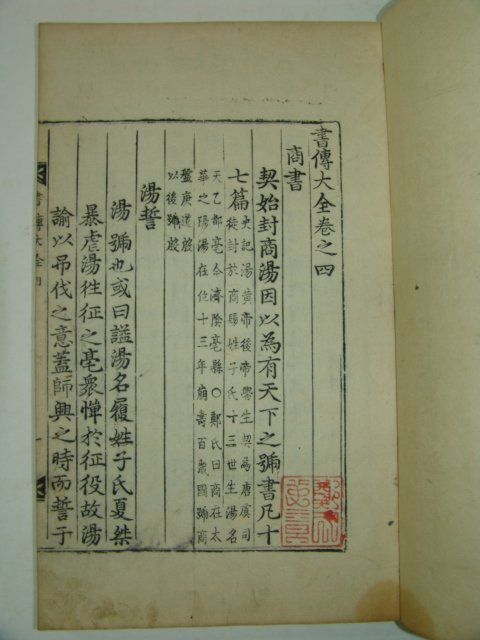 書傳大全卷之四
商書
契始封商湯因以為有天下之號書凡十
七篇
史記湯黃帝後帝嚳生契為唐虞司
徒封於商賜姓子氏十三世生湯名
天乙都亳今濟陰亳縣○鄭氏曰商在太
華之陽湯在位十三年崩壽百歲國號商
盤庚遷殷
以後號殷
湯誓
湯號也或曰諡湯名履姓子氏夏桀
暴虐湯徃征之亳衆憚於征役故湯
諭以吊伐之意蓋師興之時而誓于
書傳大全四
一